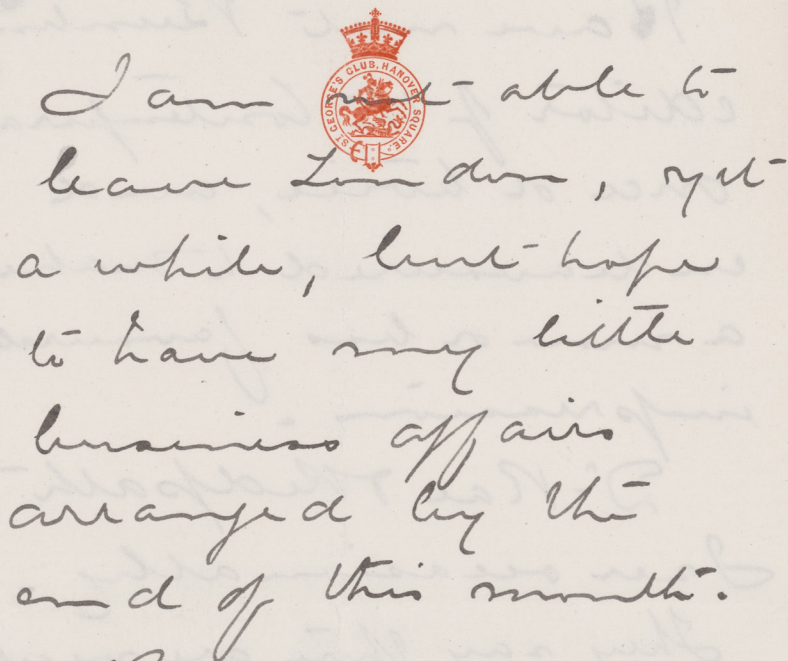 ST GEORGE'S CLUB, HANOVER SQUARE.
I am not able to
leave London, yet
a while, but hope
to have my little
business affairs
arranged by the
end of this month.